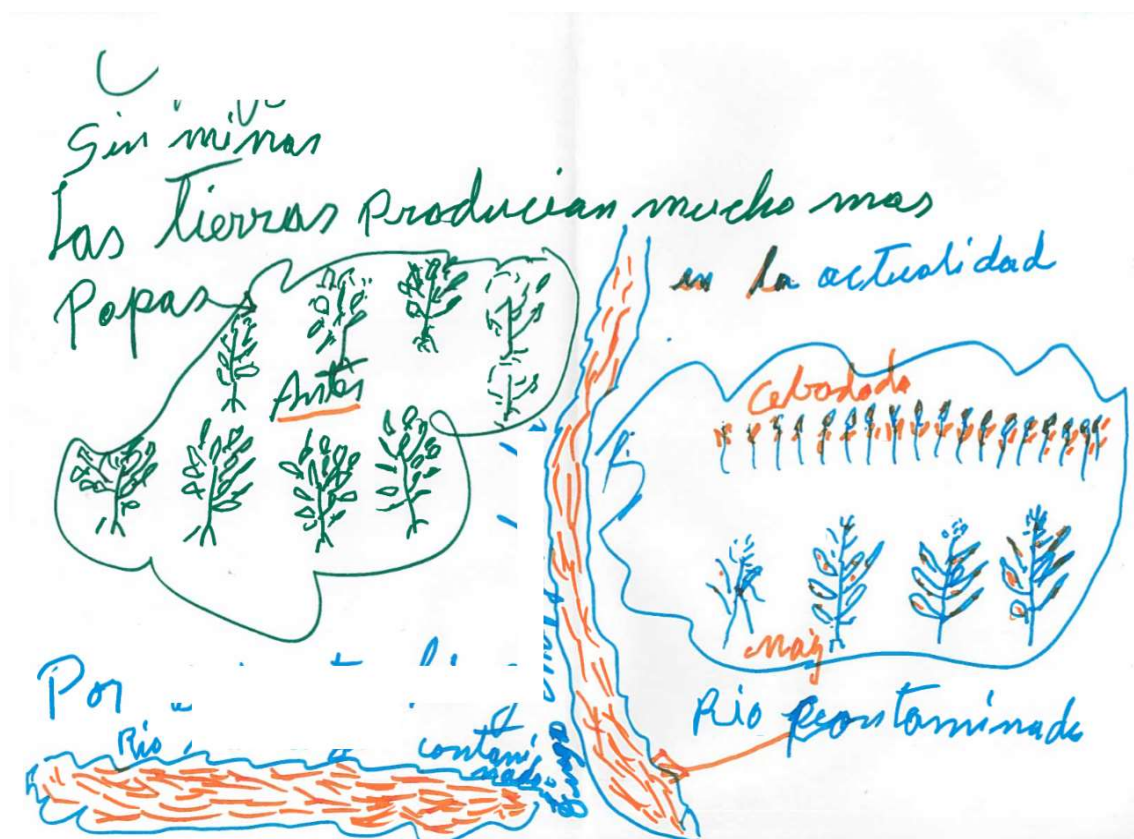 Sin minas
Las tierras producian mucho mas
Papas
Antes
en la actualidad
Cebada
maiz
Rio contaminado
Por
Rio
contami
nado